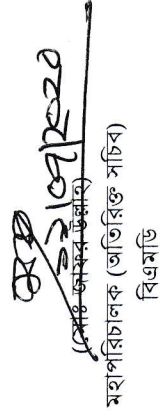 ১২/০৭/২০২০
(মোঃ জাফর উল্লাহ)
মহাপরিচালক (অতিরিক্ত সচিব)
বিএমডি